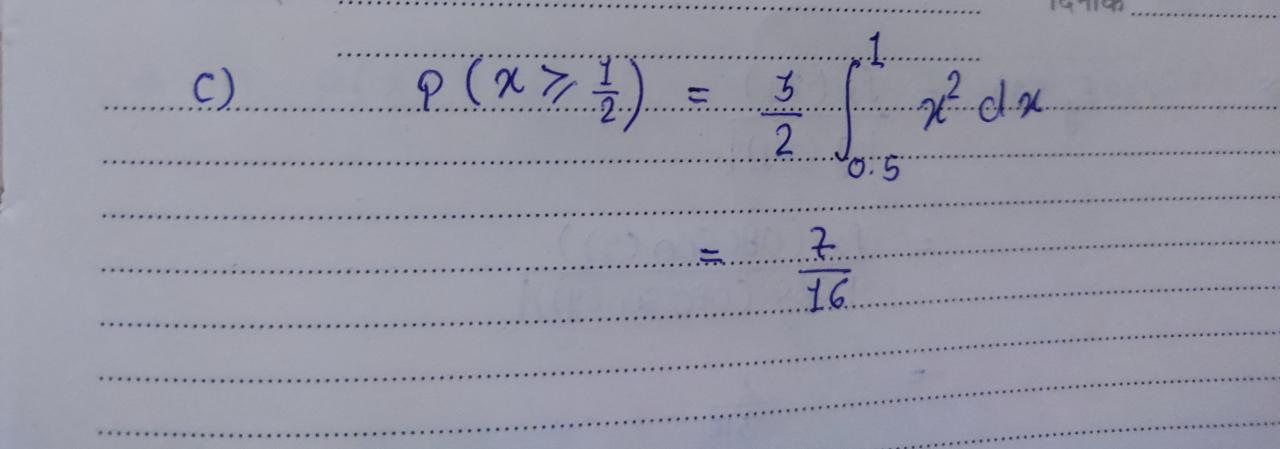 दिनांक
c) P(x ≥ 1/2) = 3/2 ∫_{0.5}^{1} x² dx
= 7/16